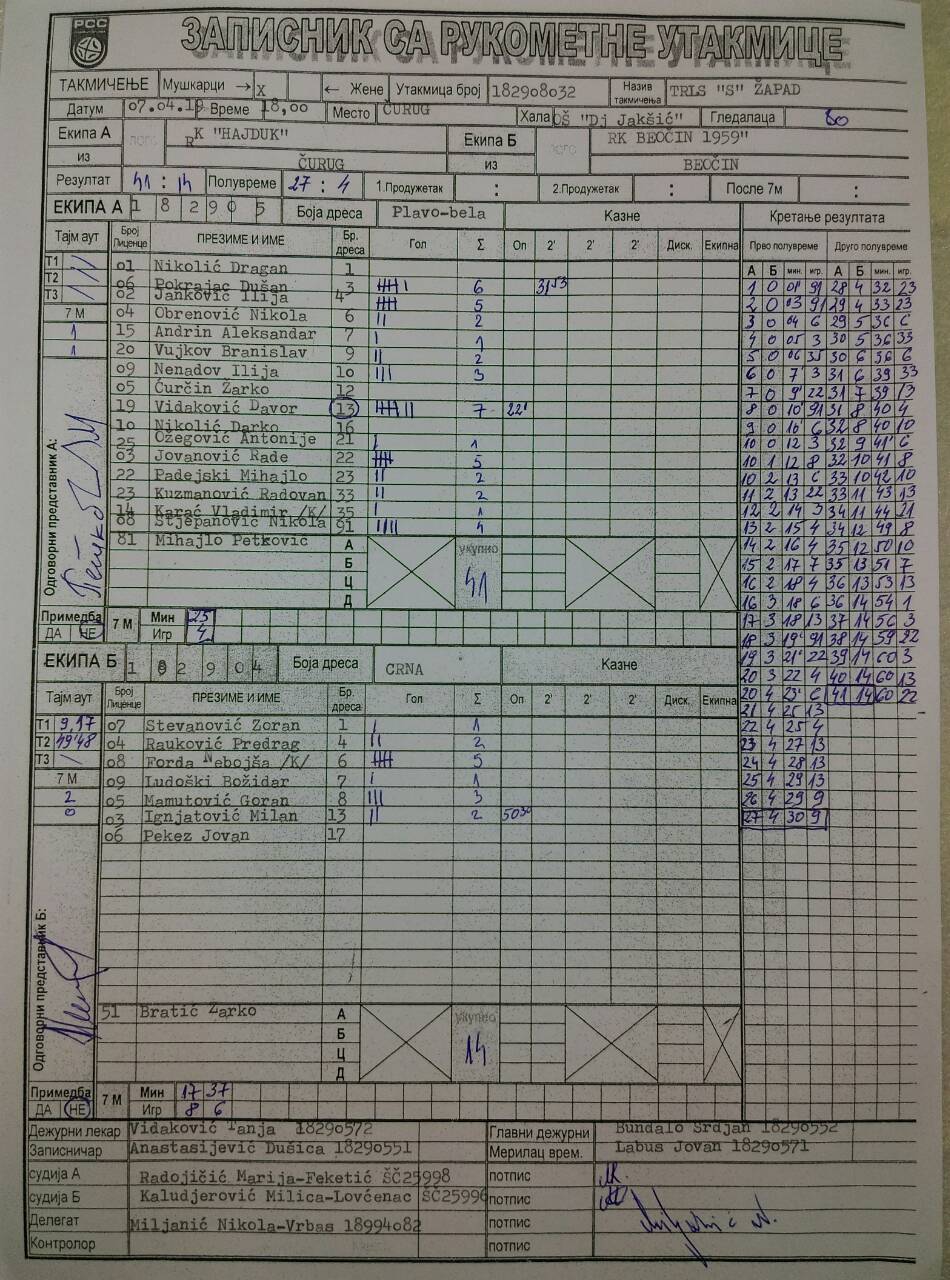 РСС
ЗАПИСНИК СА РУКОМЕТНЕ УТАКМИЦЕ
ТАКМИЧЕЊЕ Мушкарци → X ← Жене Утакмица број 182908032 Назив такмичења TRLS "S" ŽAPAD
Датум 07.04.19 Време 18,00 Место ČURUG Хала OŠ "Dj Jakšić" Гледалаца 80
Екипа А RK "HAJDUK" Екипа Б RK BEOČIN 1959"
из ČURUG из BEOČIN
Резултат 41 : 14 Полувреме 27 : 4 1.Продужетак : 2.Продужетак : После 7м :
ЕКИПА А 1 8 2 9 0 5 Боја дреса Plavo-bela Казне Кретање резултата
Тајм аут Број Лиценце ПРЕЗИМЕ И ИМЕ Бр. дреса Гол Σ Оп 2' 2' 2' Диск. Екипна Прво полувреме Друго полувреме
А Б мин. игр. А Б мин. игр.
Т1
Т2
Т3
7 М
1
1
o1 Nikolić Dragan 1
o6 Pokrajac Dušan 3 6 3153
o2 Janković Ilija 4 5
o4 Obrenović Nikola 6 2
15 Andrin Aleksandar 7 1
2o Vujkov Branislav 9 2
o9 Nenadov Ilija 1o 3
o5 Ćurčin Žarko 12
19 Vidaković Davor 13 7 22'
1o Nikolić Darko 16
25 Ožegović Antonije 21 1
o3 Jovanović Rade 22 5
22 Padejski Mihajlo 23 2
23 Kuzmanović Radovan 33 2
14 Karać Vladimir /K/ 35 1
o8 Stjepanović Nikola 91 4
81 Mihajlo Petković А укупно 41
Б
Ц
Д
Одговорни представник А:
1 0 01' 91 28 4 32 23
2 0 03 91 29 4 33 23
3 0 04 6 29 5 36 6
4 0 05 3 30 5 36 33
5 0 06 35 30 6 36 6
6 0 7' 3 31 6 39 33
7 0 9' 22 31 7 39 13
8 0 10' 91 31 8 40 4
9 0 10' 6 32 8 40 10
10 0 12 3 32 9 41' 6
10 1 12 8 32 10 41 8
10 2 13 6 33 10 42 10
11 2 13 22 33 11 43 13
12 2 14 3 34 11 44 21
13 2 15 4 34 12 49 8
14 2 16 4 35 12 50 10
15 2 17 7 35 13 51 7
16 2 18 4 36 13 53 13
16 3 18 6 36 14 54 1
17 3 18 13 37 14 56 3
18 3 19' 91 38 14 59 22
19 3 21' 22 39 14 60 3
20 3 22 4 40 14 60 13
20 4 23' 6 41 14 60 22
21 4 25 13
22 4 25 4
23 4 27 13
24 4 28 13
25 4 29 13
26 4 29 9
27 4 30 9
Примедба ДА НЕ 7 М Мин 25
Игр 4
ЕКИПА Б 1 8 2 9 0 4 Боја дреса CRNA Казне
Тајм аут Број Лиценце ПРЕЗИМЕ И ИМЕ Бр. дреса Гол Σ Оп 2' 2' 2' Диск. Екипна
Т1 9,17 o7 Stevanović Zoran 1 1
Т2 49'48 o4 Rauković Predrag 4 2
Т3 o8 Forda Nebojša /K/ 6 5
7 М o9 Ludoški Božidar 7 1
2 o5 Mamutović Goran 8 3
0 o3 Ignjatović Milan 13 2 5030
o6 Pekez Jovan 17
Одговорни представник Б:
51 Bratić Žarko А укупно 14
Б
Ц
Д
Примедба ДА НЕ 7 М Мин 17 37
Игр 8 6
Дежурни лекар Vidaković Tanja 18290572 Главни дежурни Bundalo Srdjan 18290552
Записничар Anastasijević Dušica 18290551 Мерилац врем. Labus Jovan 18290571
судија А Radojičić Marija-Feketić ŠČ25998 потпис
судија Б Kaludjerović Milica-Lovćenac ŠČ25996 потпис
Делегат Miljanić Nikola-Vrbas 18994o82 потпис
Контролор потпис